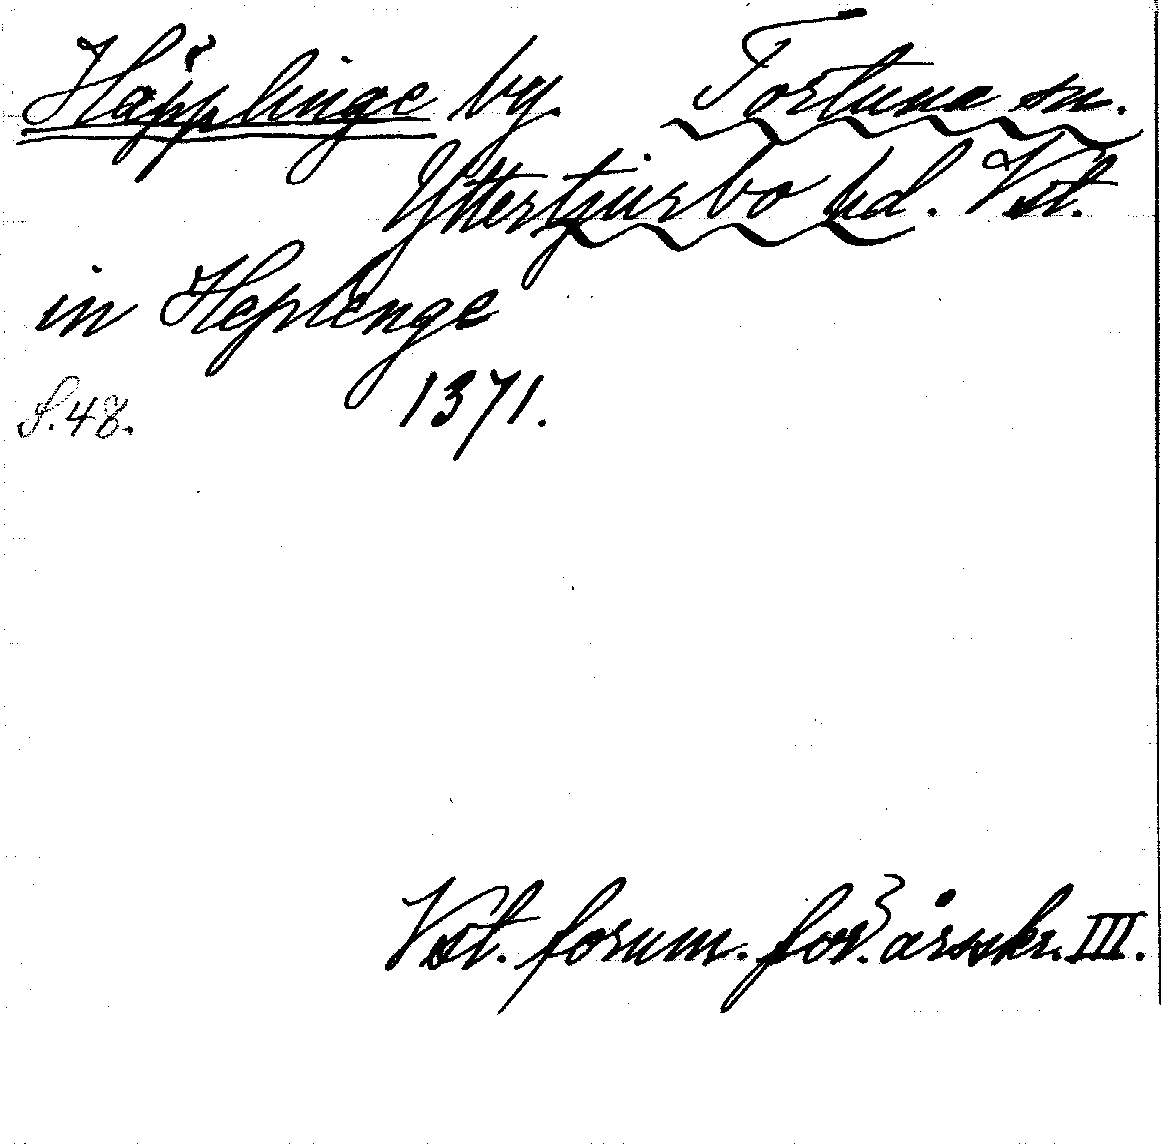 Häpplinge by. Fortuna sn.
Yttertjurbo hd. Vstl.
in Heplenge
S.48. 1371.
Vstl. fornm. för:s årsskr. III.